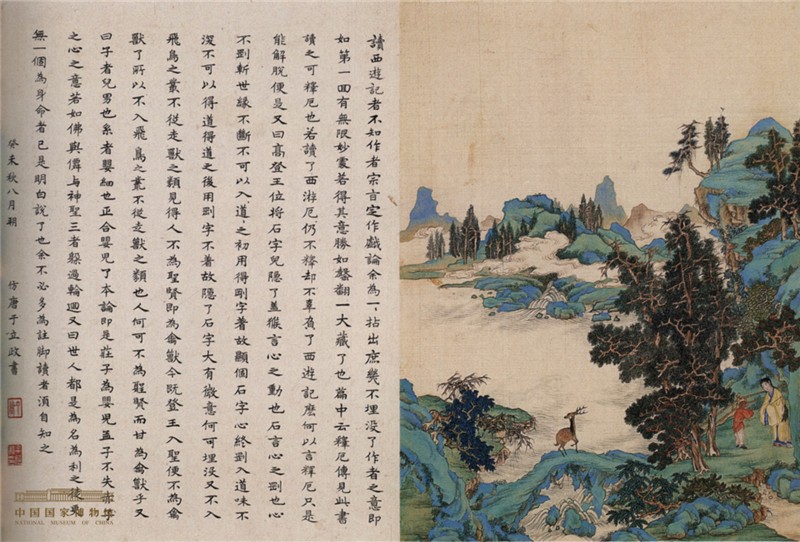 讀西遊記者不知作者宗旨定作戲論余為一一拈出庶幾不埋没了作者之意即
如第一回有無限妙處若得其意勝如繙翻一大藏了也篇中云釋厄傳見此書
讀之可釋厄也若讀了西游厄仍不釋却不辜負了西遊記麽何以言釋厄只是
能解脫便是又曰高登王位将石字兒隱了蓋猴言心之動也石言心之剛也心
不剛斬世緣不斷不可以入道之初用得剛字着故顯個石字心終剛入道味不
深不可以得道得道之後用剛字不着故隱了石字大有微意何可埋没又不入
飛鳥之叢不從走獸之類見得人不為聖賢即為禽獸今既登王入聖便不為禽
獸了所以不入飛鳥之叢不從走獸之類也人何可不為聖賢而甘為禽獸乎又
曰子者兒男也系者嬰細也正合嬰兒之本論即是莊子為嬰兒孟子不失赤子
之心之意若如佛與僊與神聖三者躲過輪迴又曰世人都是為名為利之徒更
無一個為身命者已是明白說了也余不必多為註脚讀者須自知之
癸未秋八月朔 仿唐于立政書
中国国家博物馆
NATIONAL MUSEUM OF CHINA